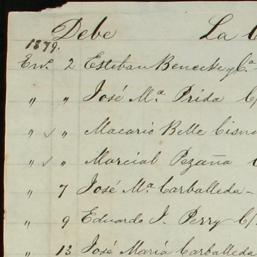 Debe La
1879.
Enº. 2 Esteban Benecke y Cª
" " José Mª Prida C/
" " Macario Belle Cisne
" " Marcial Pezaña C
" 7 José Mª Carballeda-
" 9 Eduardo J. Perry C/
" 13 José María Carballeda